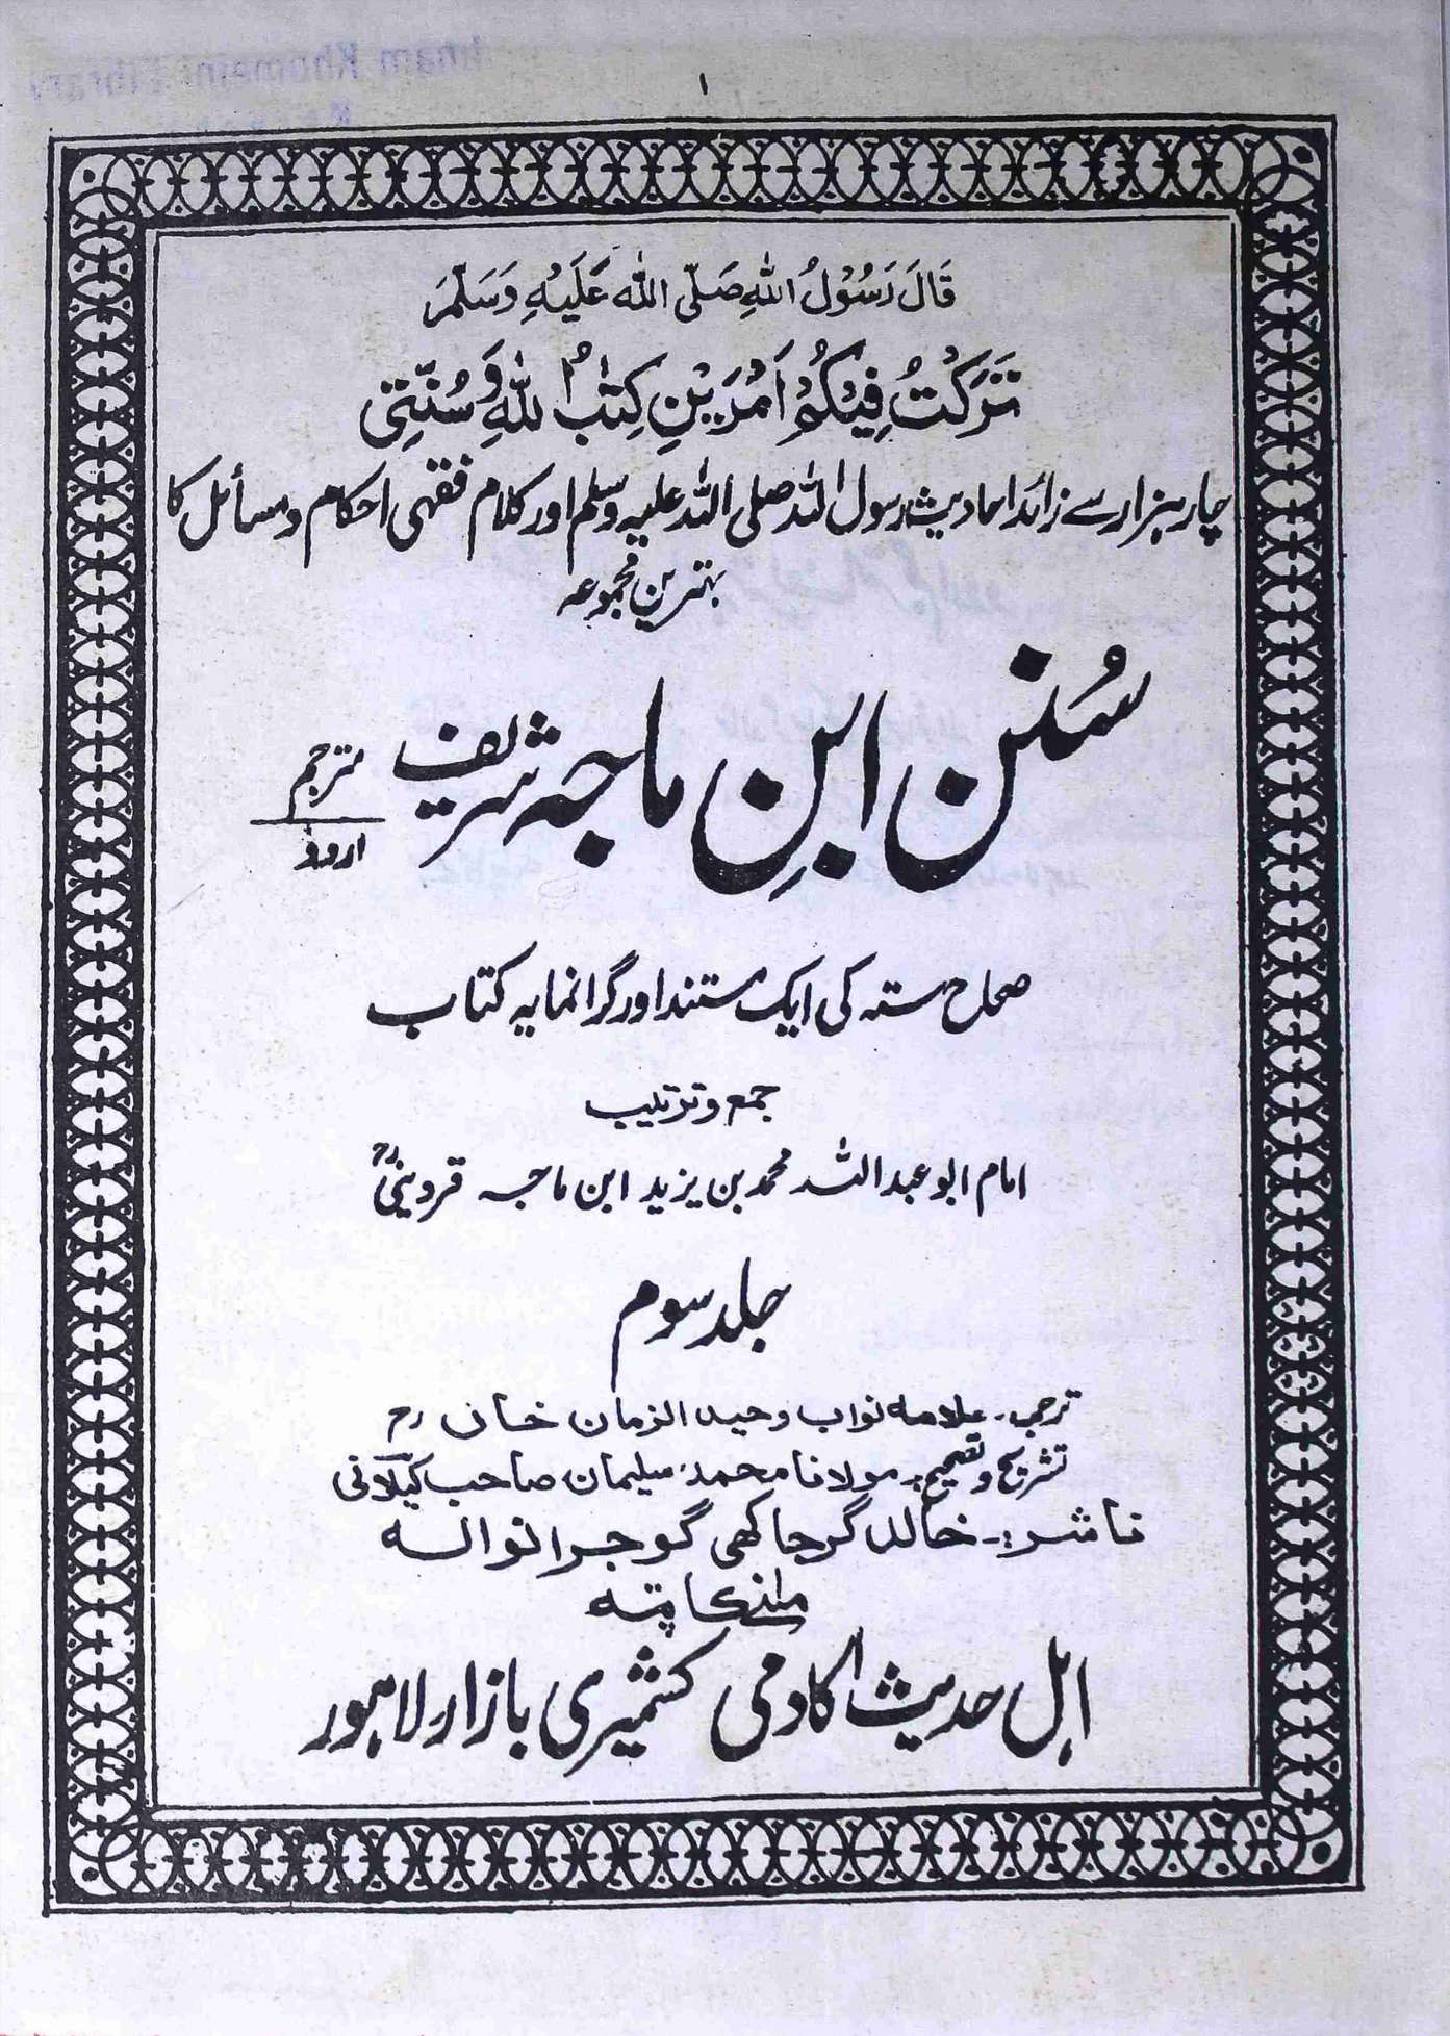 ۱
قَالَ رَسُوْلُ اللّٰهِ صَلَّى اللّٰه عَلَيْهِ وَسَلَّمَ
تَرَكْتُ فِيْكُمْ اَمْرَيْنِ كِتٰبُ اللّٰهِ وَ سُنَّتِیْ
چار ہزار سے زائد احادیث رسول اللہ صلی اللہ علیہ وسلم اور کلام فقہی احکام و مسائل کا
بہترین مجموعہ
سُنن ابنِ ماجہ شریف مترجم
اردو
صحاح ستہ کی ایک مستند اور گرانمایہ کتاب
جمع و ترتیب
امام ابو عبد اللہ محمد بن یزید ابن ماجہ قزوینیؒ
جلد سوم
ترجمہ۔ علامہ نواب وحید الزمان خان رح
تشریح و تصحیح۔ مولانا محمد سلیمان صاحب کیلانی
ناشر:۔ خالد گرجاکھی گوجرانوالہ
ملنے کا پتہ
اہل حدیث اکادمی کشمیری بازار لاہور